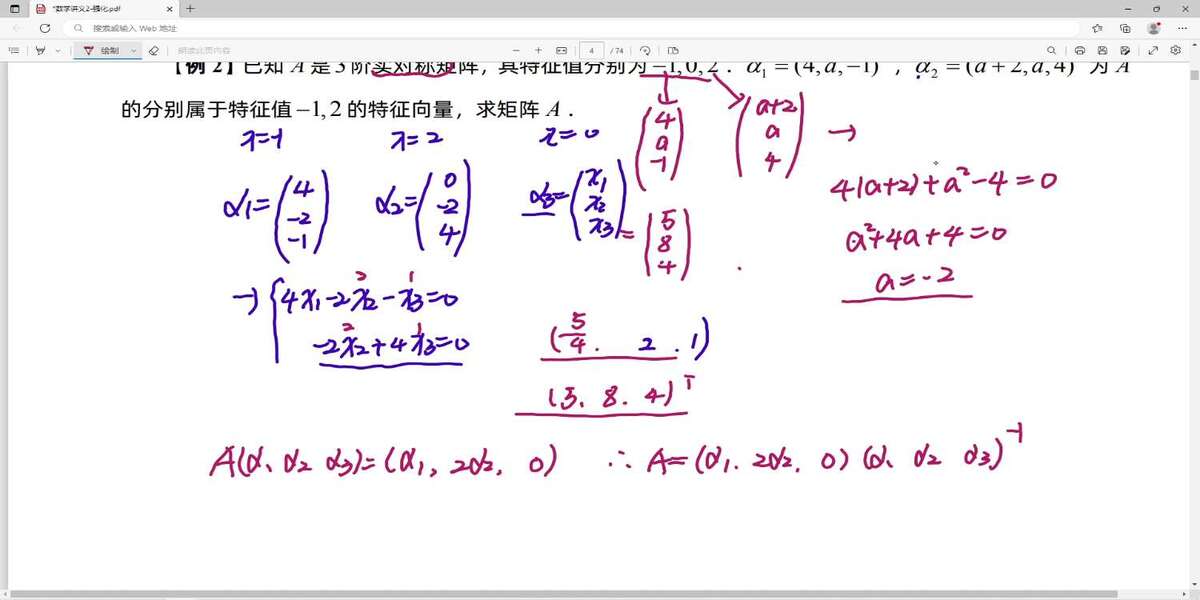 *数学讲义2-强化.pdf
搜索或输入 Web 地址
绘制
朗读此页内容
4 / 74
【例 2】已知 A 是 3 阶实对称矩阵，其特征值分别为 −1, 0, 2． α₁ = (4, a, −1)，α₂ = (a + 2, a, 4) 为 A
的分别属于特征值 −1, 2 的特征向量，求矩阵 A．
λ=-1 λ=2 λ=0
(4 a -1) (a+2 a 4) →
4(a+2)+a²-4=0
α1=(4 -2 -1) α2=(0 -2 4) α3=(x1 x2 x3)=(5 8 4)
a²+4a+4=0
a=-2
→ { 4x1-2x2-x3=0
2 1
-2x2+4x3=0
2 1
(5/4. 2 . 1)
(5. 8. 4)ᵀ
A(α1 α2 α3)=(α1, 2α2, 0) ∴ A=(α1. 2α2, 0)(α1 α2 α3)⁻¹